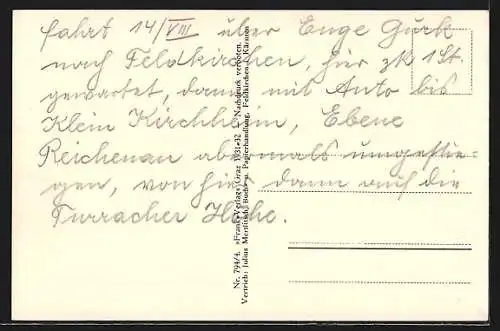 fahrt 14/VIII über Enge Gurk
nach Feldkirchen, hier 1 St.
gewartet, dann mit Auto bis
Klein Kirchheim, Ebene
Reichenau abermals umgestie-
gen, von hier dann auf die
Turracher Höhe.
Nr. 794/4. »Frank-Verlag« Graz 1931-32 Nachdruck verboten.
Vertrieb: Julius Buch- u. Papierhandlung, Feldkirchen, Kärnten